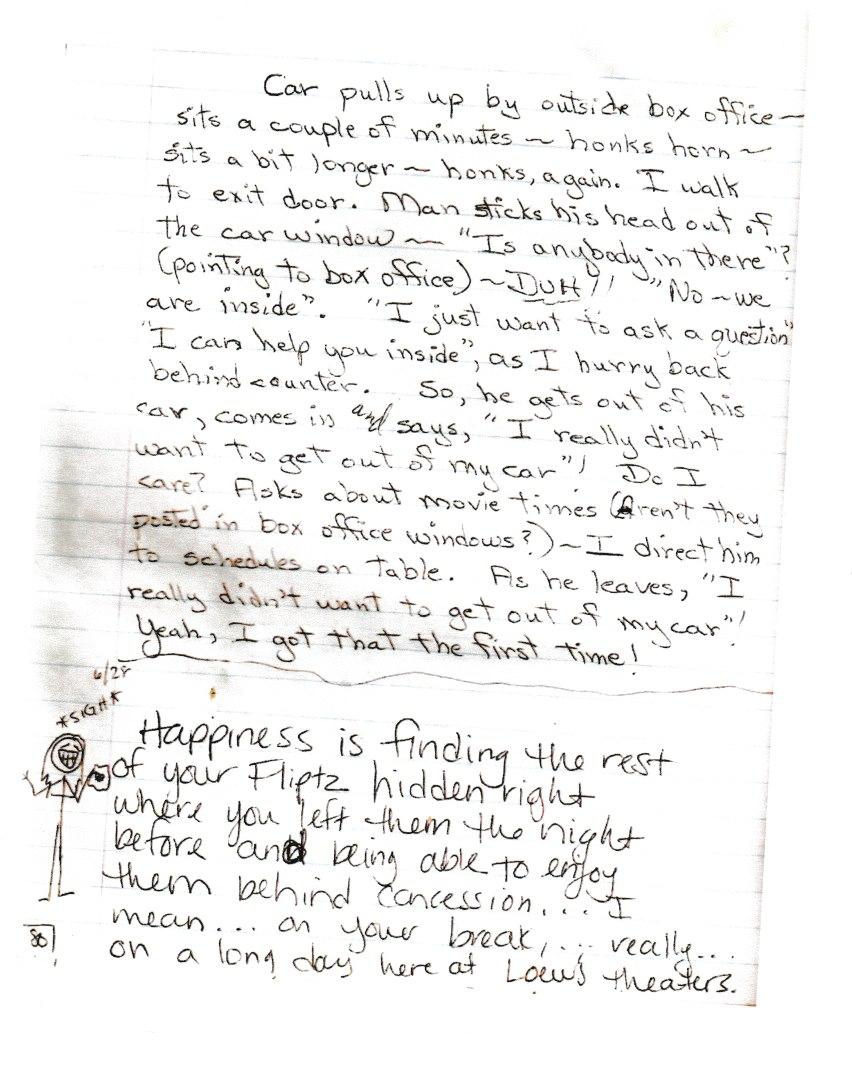 Car pulls up by outside box office ~
sits a couple of minutes ~ honks horn ~
sits a bit longer ~ honks, again. I walk
to exit door. Man sticks his head out of
the car window ~ "Is anybody in there"?
(pointing to box office) ~ DUH!! "No ~ we
are inside". "I just want to ask a question"
"I can help you inside", as I hurry back
behind counter. So, he gets out of his
car, comes in and says, "I really didn't
want to get out of my car"! Do I
care? Asks about movie times (Aren't they
posted in box office windows?) ~ I direct him
to schedules on table. As he leaves, "I
really didn't want to get out of my car"!
Yeah, I got that the first time!
6/28
*SIGH*
Happiness is finding the rest
of your Fliptz hidden right
where you left them the night
before and being able to enjoy
them behind concession.... I
mean... on your break,... really...
on a long day here at Loew's theaters.